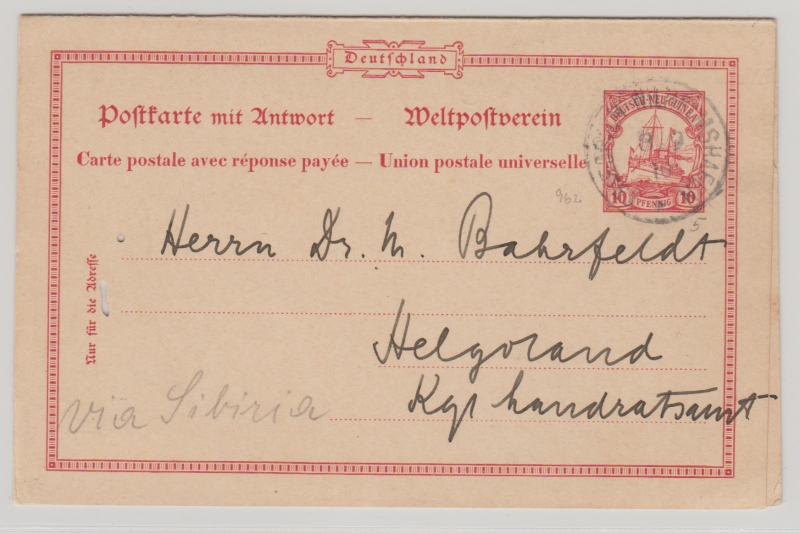 Deutschland
Postkarte mit Antwort — Weltpostverein
Carte postale avec réponse payée — Union postale universelle
DEUTSCH-NEU-GUINEA
10 PFENNIG 10
962
5
Herrn Dr. M. Bahrfeldt
Nur für die Adresse
Helgoland
Kgl Landratsamt
via Sibiria